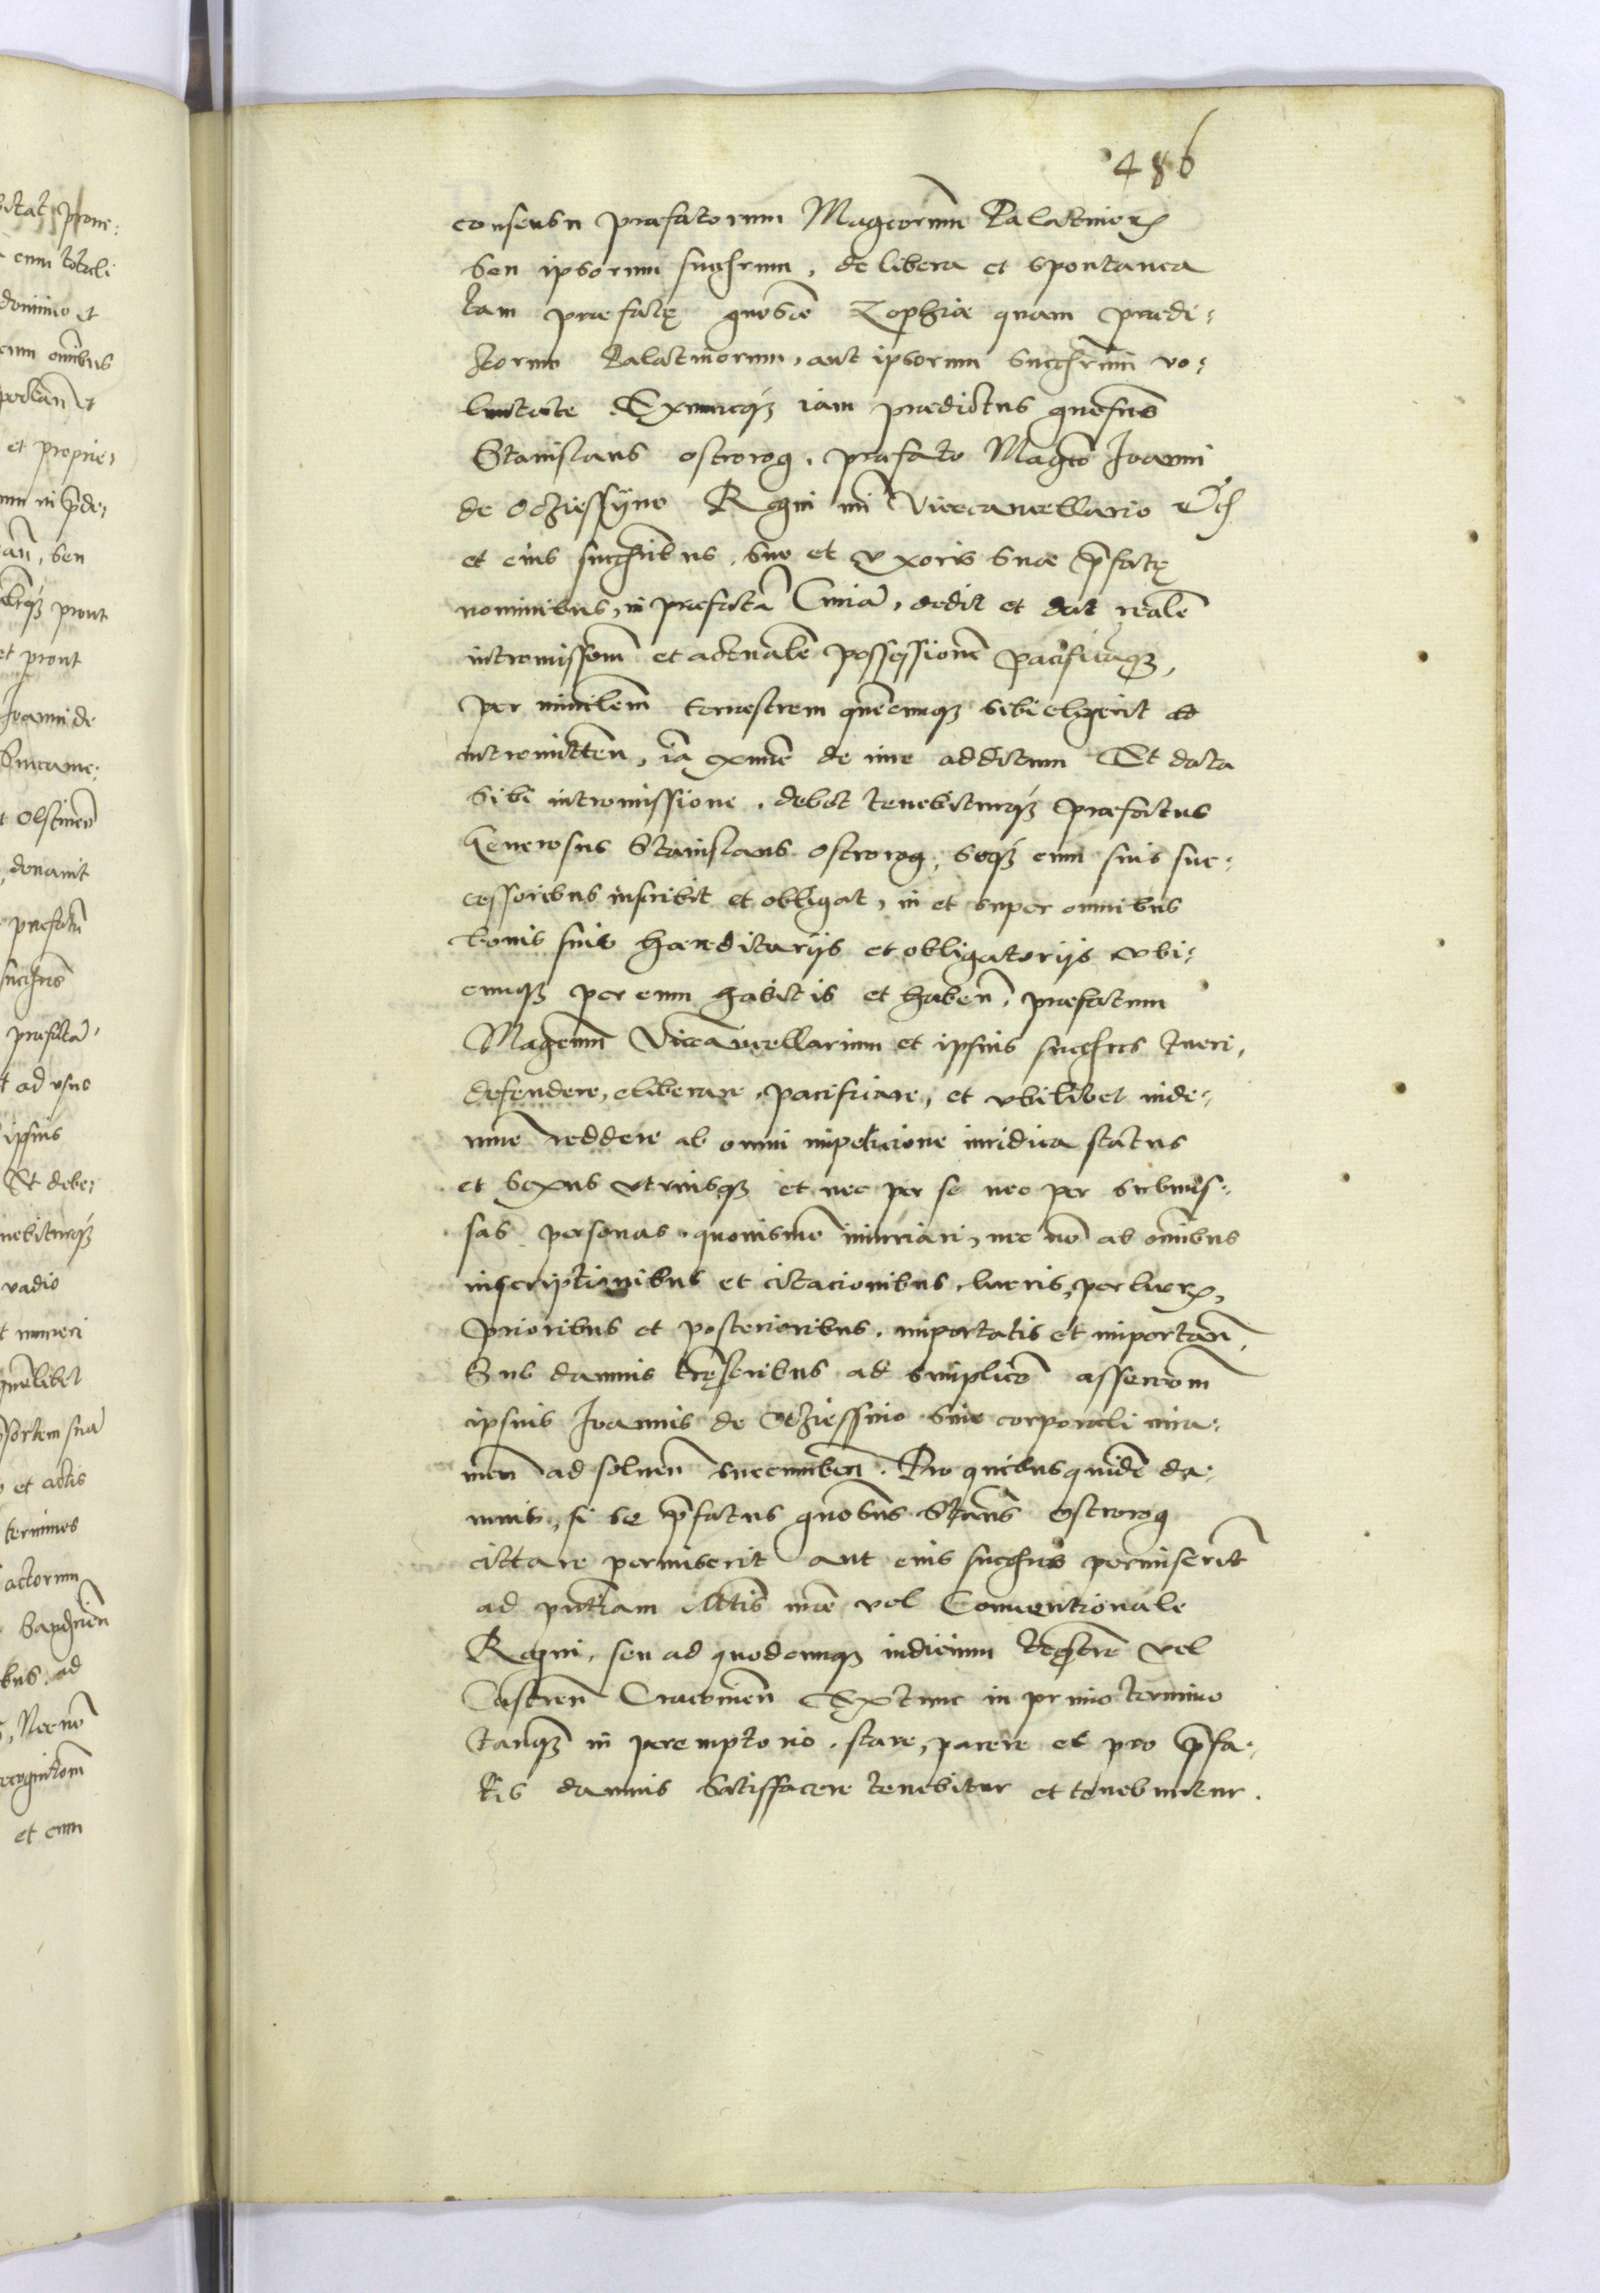 486
consensu praefatorum Magcorum Palatinor
seu ipsorum succrum, de libera et spontanea
tam praefatę gnosae Zophiae quam praedi:
ctorum Palatinorum, aut ipsorum succrum vo:
luntate Exnuncq iam praedictus gnosus
Stanislaus ostrorog, praefato Magco Joanni
de Ocziessyno Regni nri Vicecancellario etc
et eius succribus, suo et vxoris suae pfatę
nominibus, in praefatā Curiā, dedit et dat realē
intromissionem et actualē possessionē pacificāq,
per ministerialem terrestrem quēcumq sibi elegerit ad
intromitten, iā exnunc de iure additum Et data
sibi intromissione, debet tenebiturq praefatus
Generosus Stanislaus ostrorog, seq cum suis suc:
cessoribus inscribit et obligat, in et super omnibus
bonis suis haereditarijs et obligatorijs vbi:
cumq per eum habitis et haben, praefatum
Magcum Vicecancellarium et ipsius succres tueri,
defendere, eliberare, pacificare, et vbilibet inde:
mnē reddere ab omni impeticione iuridica status
et sexus vtriusq et nec per se nec per submis:
sas personas quouismō iniuriari, nec nō ab omibus
inscriptionibus et citacionibus lucris, perlucr,
prioribus et posterioribus, importatis et importan,
Sub damnis trrestribus ad simplicē assercionem
ipsius Joannis de Ocziessino sine corporali iura:
men ad soluen succumben. Pro quibusquidē da:
mnis, si se pfatus gnosus Stanis Ostrorog
cittare permiserit aut eius succres permiserīt
ad pntiam Mtis nrae vel Conuentionale
Regni, seu ad quodcumq iudicium terrestre vel
Castren Cracouien Extunc in primo termino
tanq in peremptorio, stare, parere et pro pfa:
tis damnis satisfacere tenebitur et tenebuntur.